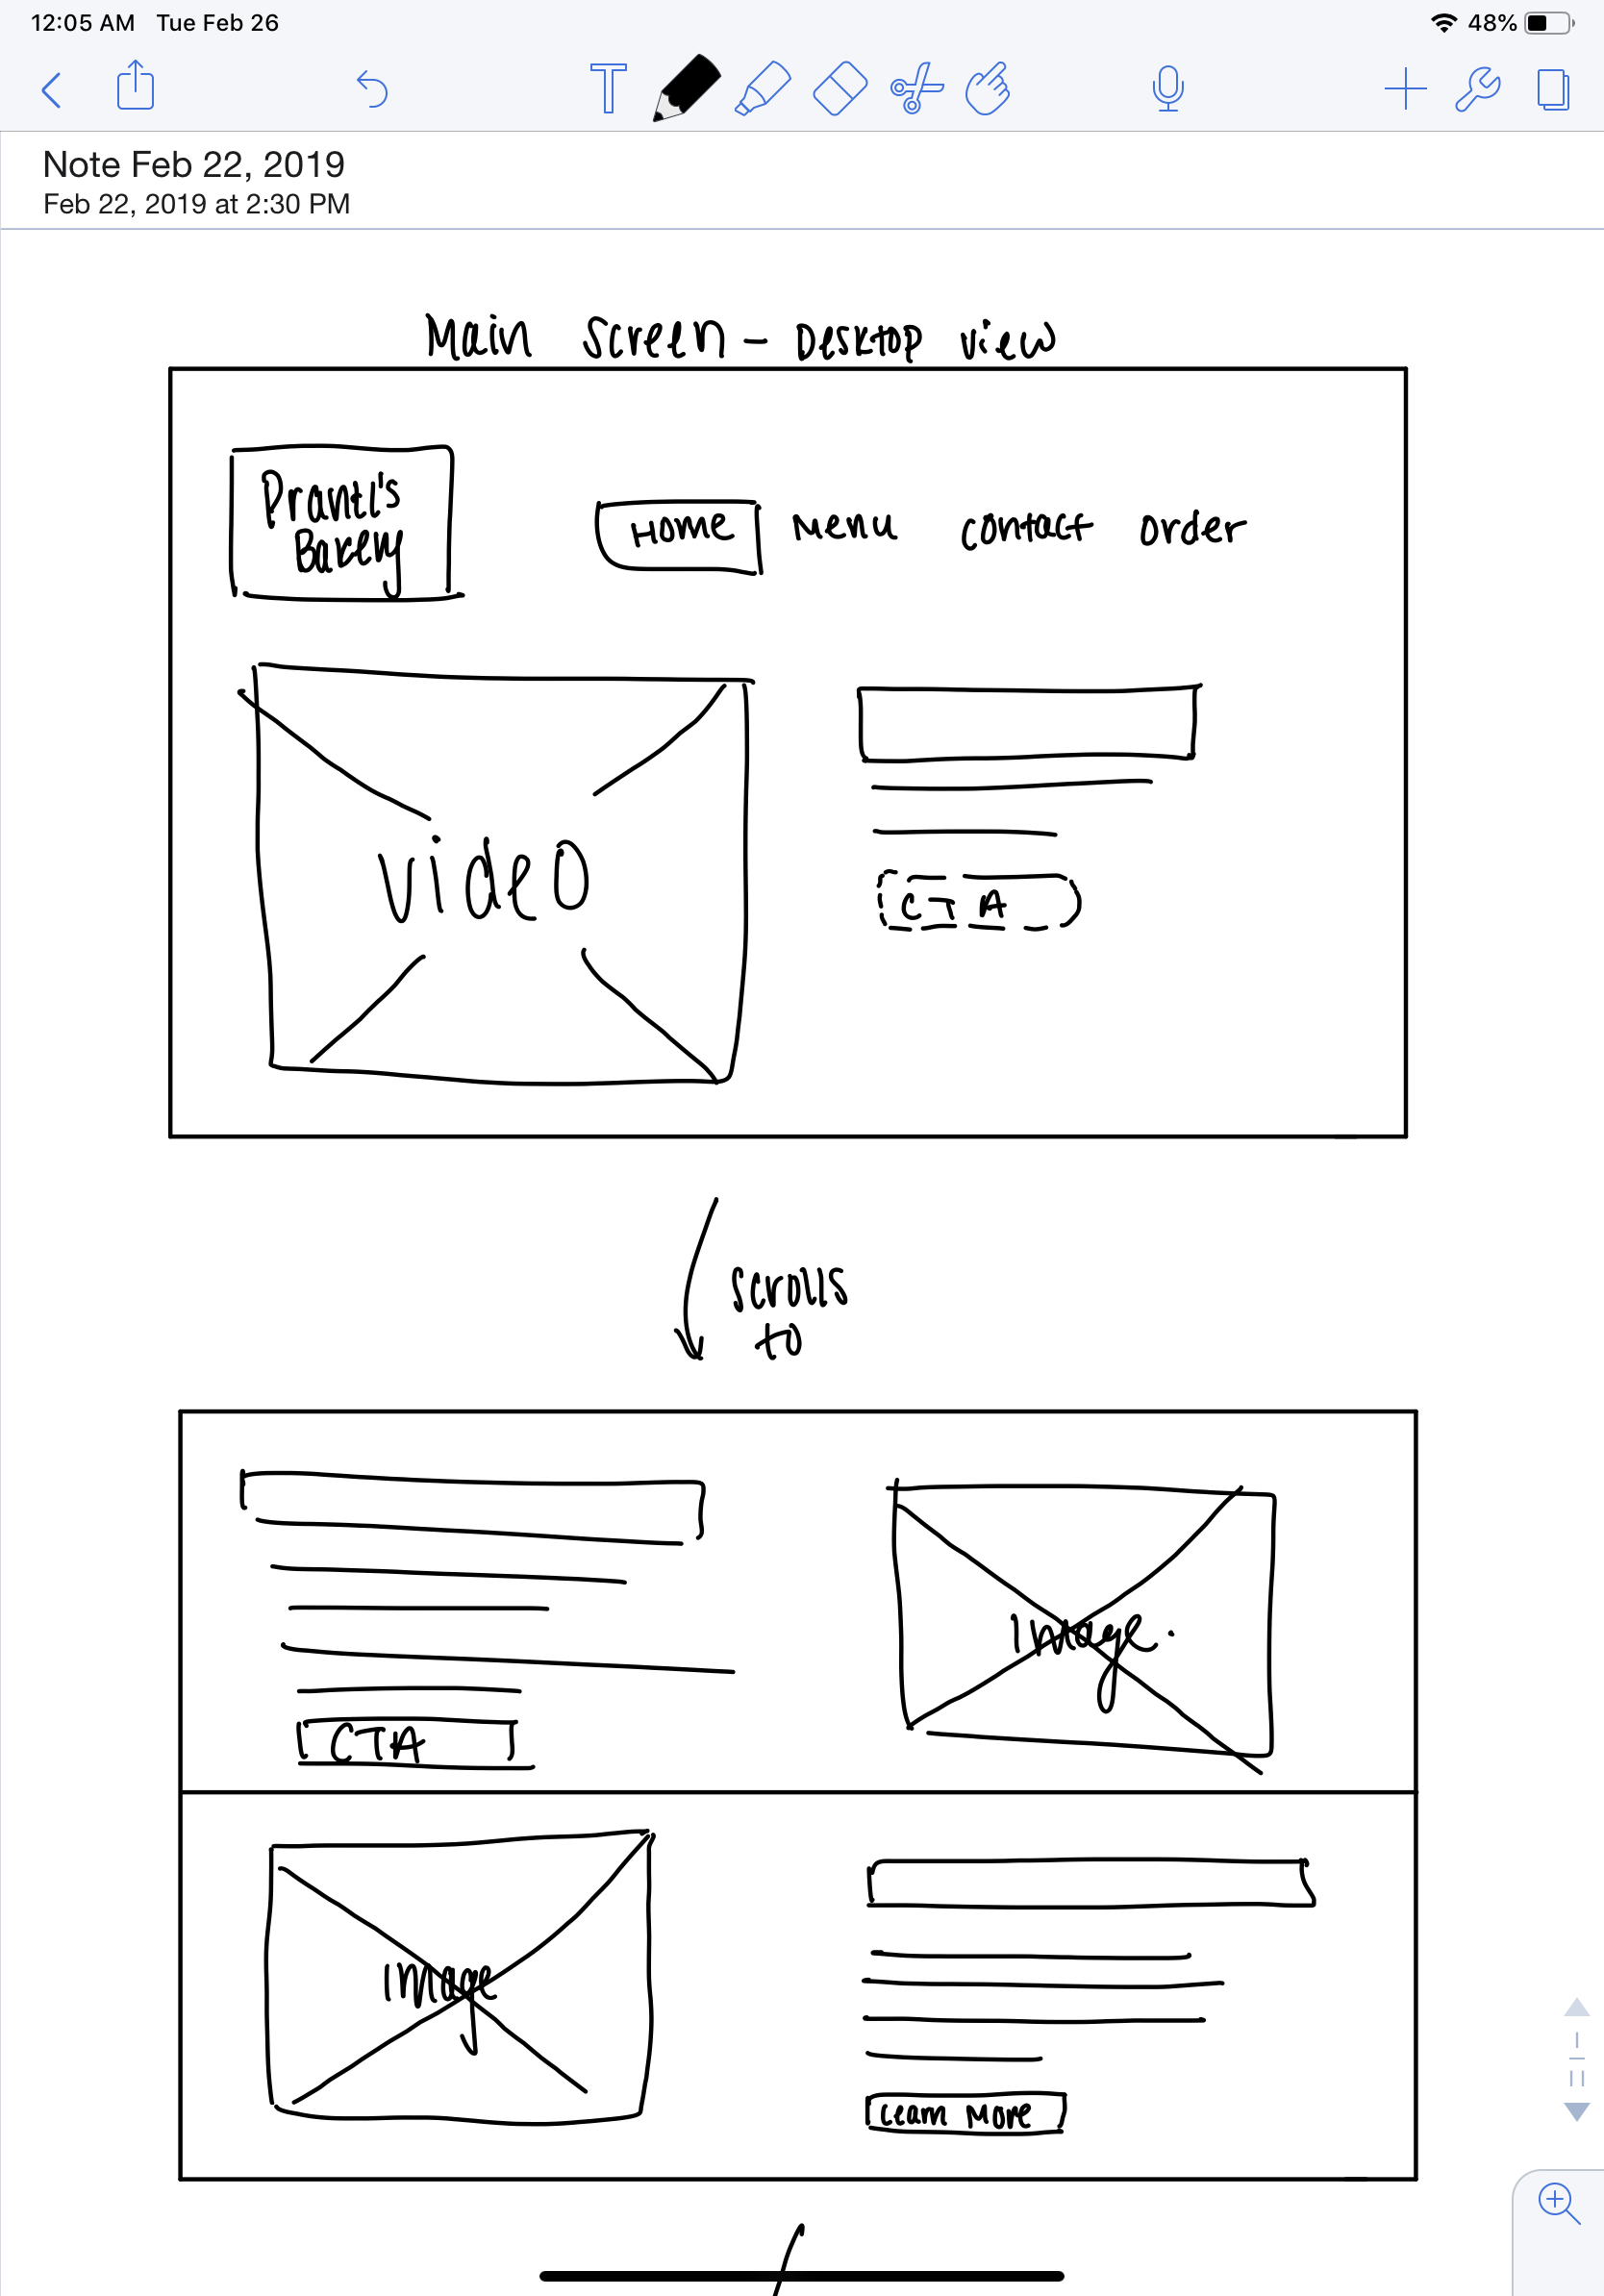 12:05 AM Tue Feb 26 48%
T
Note Feb 22, 2019
Feb 22, 2019 at 2:30 PM
Main Screen - Desktop view
Prantl's
Bakery
Home Menu contact order
video
CTA
scrolls
to
Image.
CTA
image
Learn More